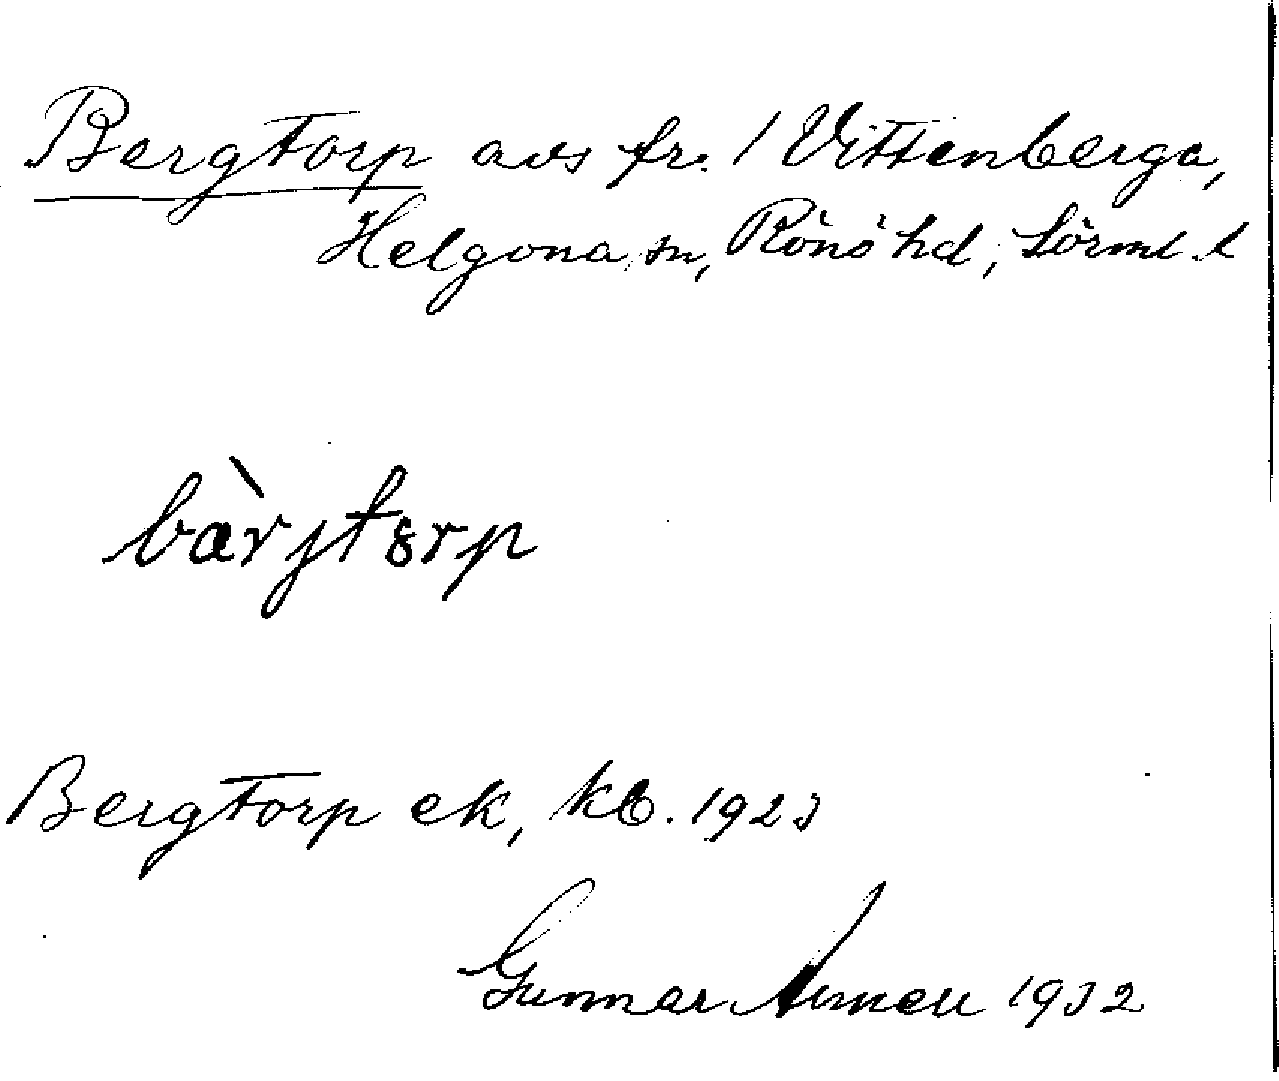 Bergtorp avs fr. 1 Vittenberga,
Helgona sn, Rönö hd, Sörml. l
bàrjtorp
Bergtorp ek, kb. 1923
Gunnar 1932